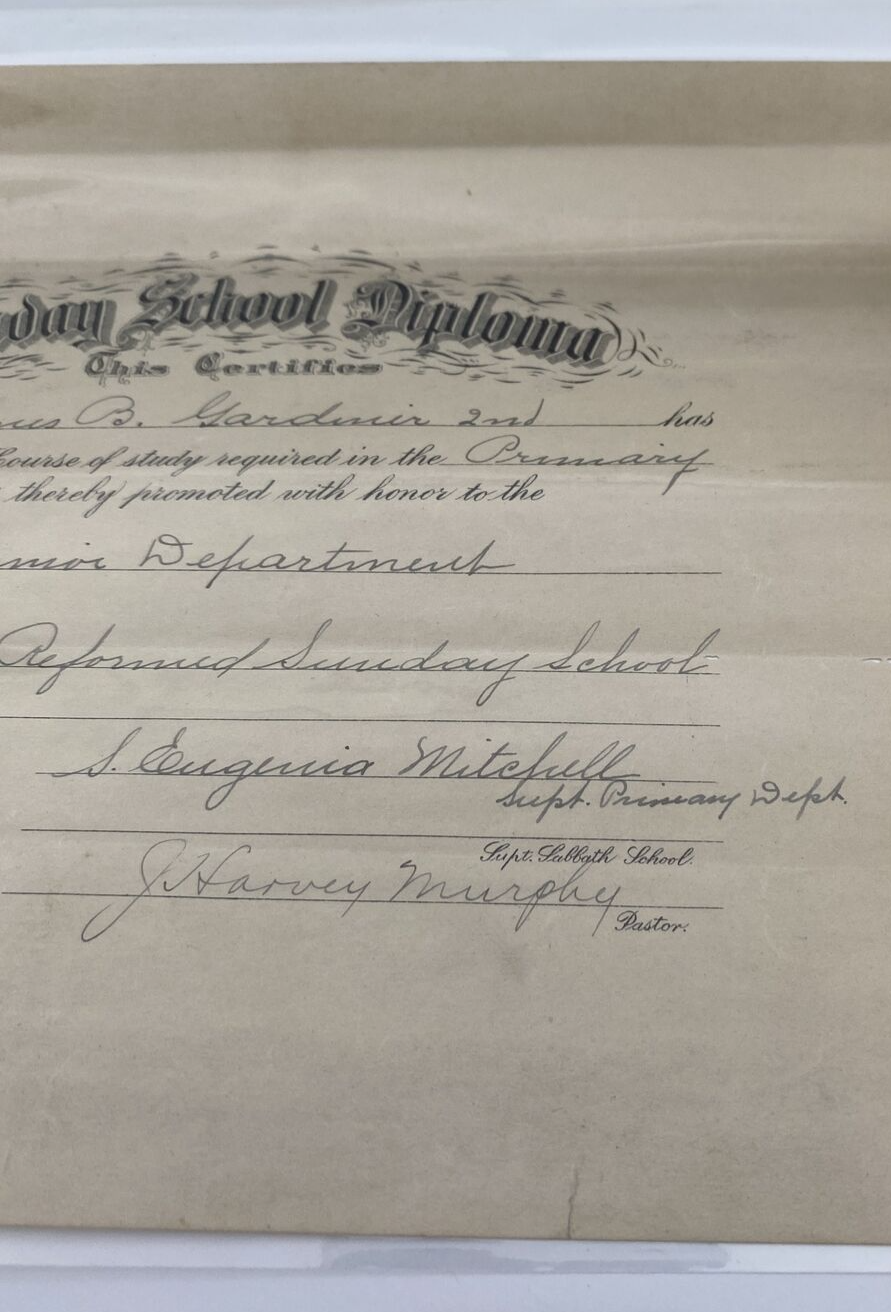 day School Diploma
This Certifies
us B. Gardinier 2nd has
Course of study required in the Primary
thereby promoted with honor to the
nior Department
Reformed Sunday School
S. Eugenia Mitchell
Supt. Primary Dept.
Supt. Sabbath School.
J. Harvey Murphy
Pastor.